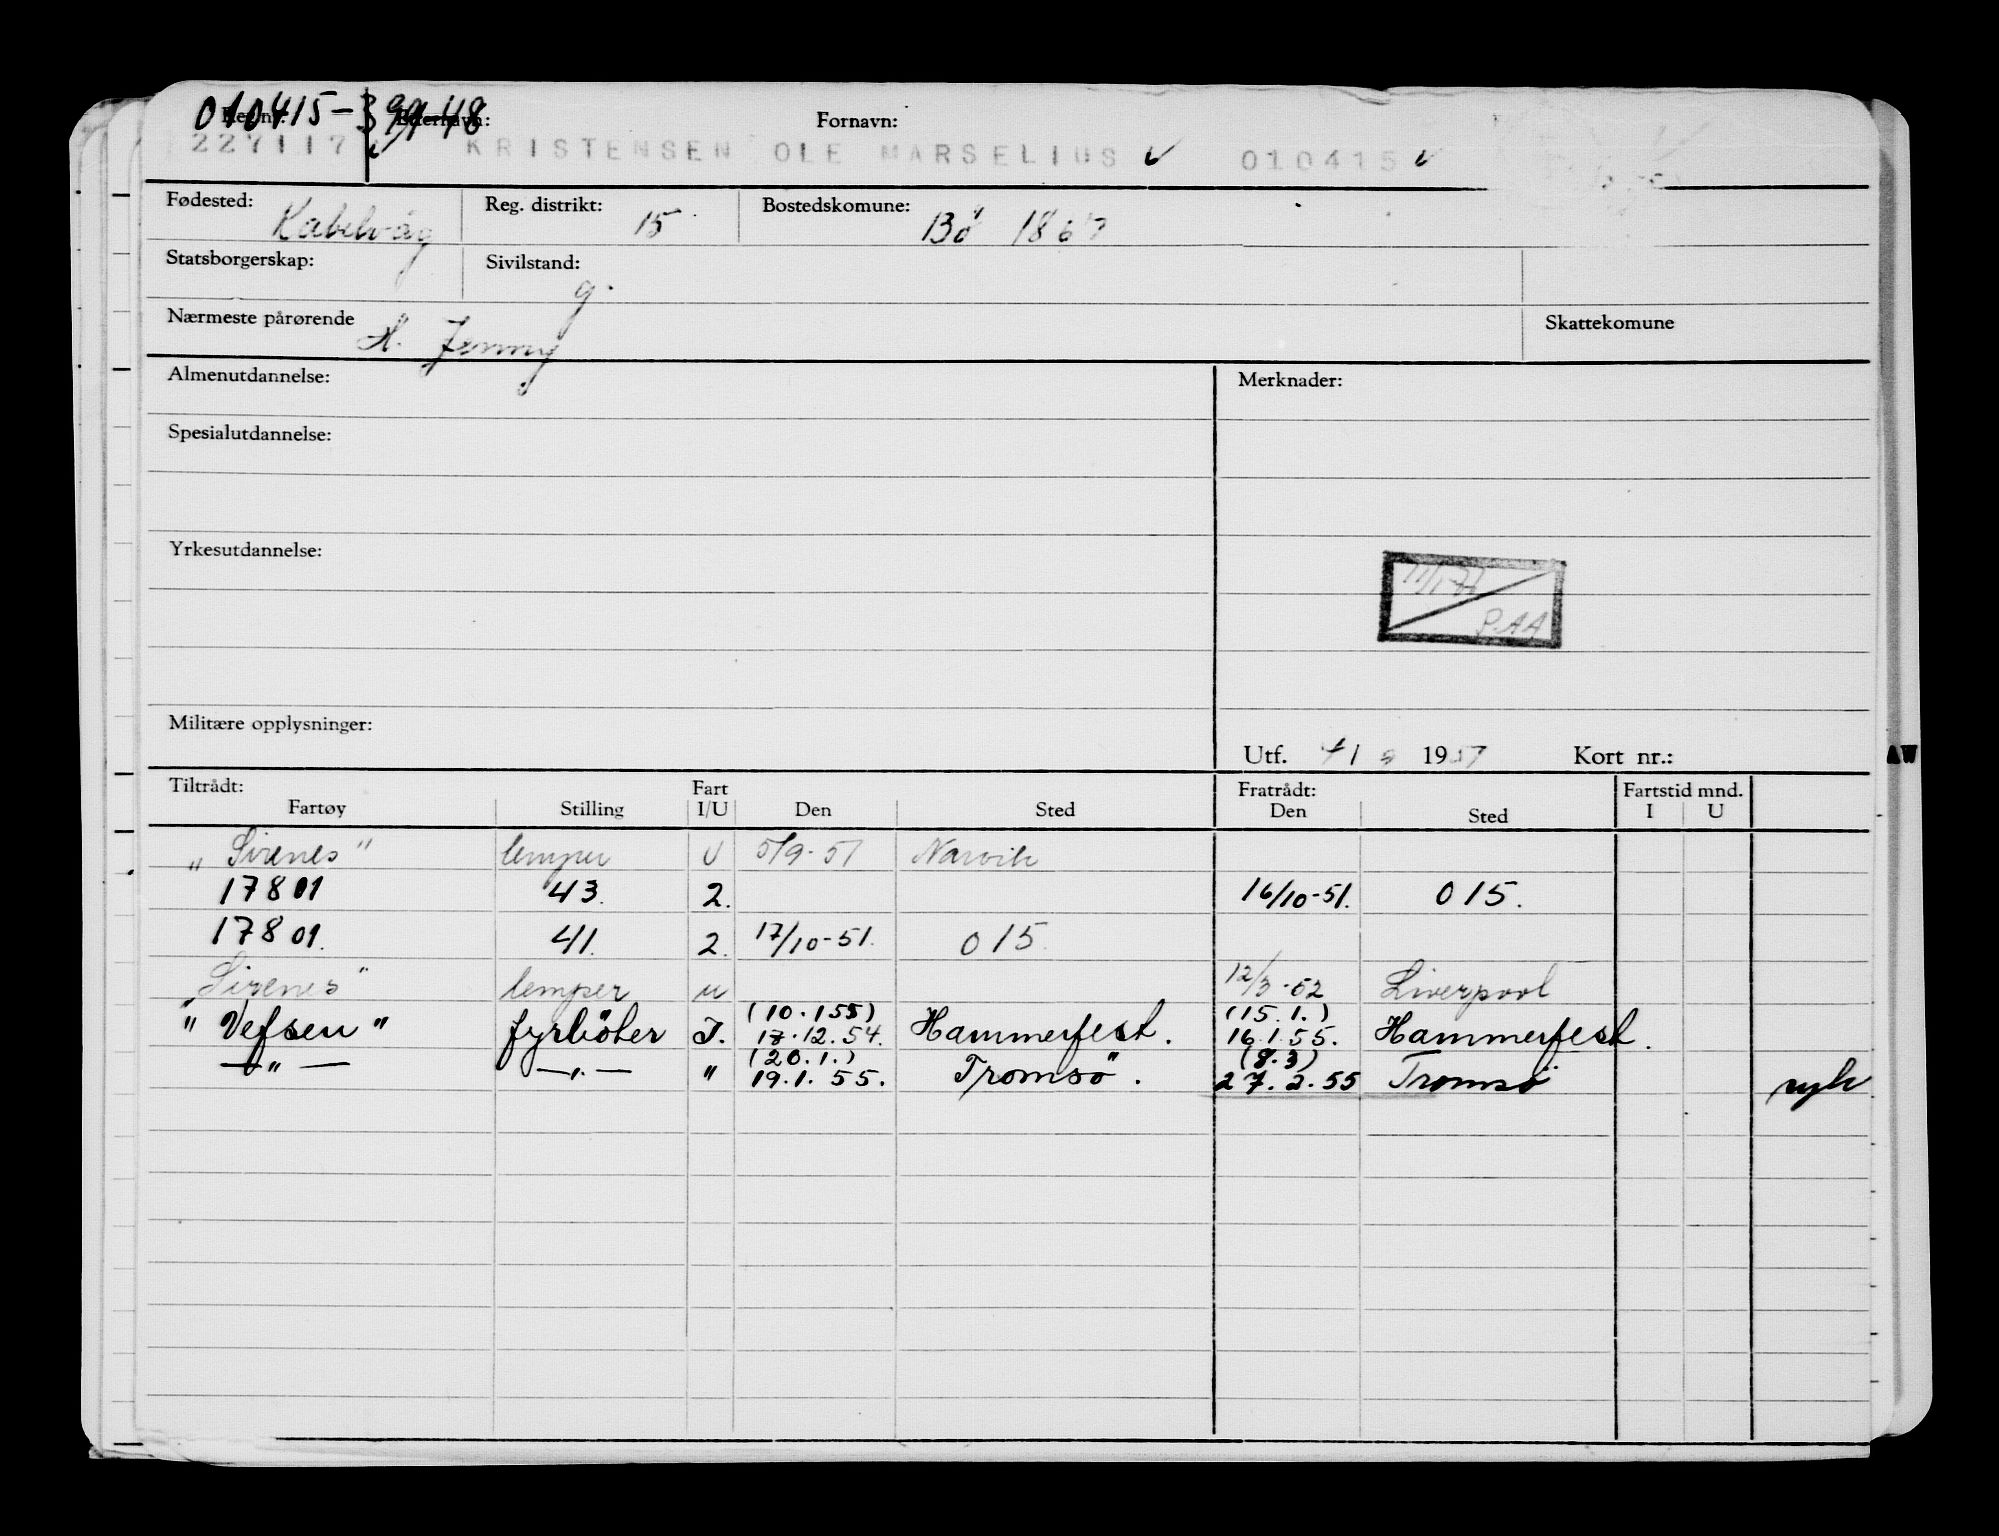 010415-39948
Reg. nr. Etternavn: Fornavn:
227117 KRISTENSEN OLE MARSELIUS ✓ 010415 ✓
Fødested: Kabelvåg Reg. distrikt: 15 Bostedskomune: Bö 1867
Statsborgerskap: Sivilstand: g.
Nærmeste pårørende H. Jenny Skattekomune
Almenutdannelse: Merknader:
Spesialutdannelse:
Yrkesutdannelse:
P.AA
Militære opplysninger:
Utf. 19 Kort nr.:
AW
Tiltrådt: Fart Fratrådt: Fartstid mnd.
Fartøy Stilling I/U Den Sted Den Sted I U
"Sirenes" lemper U 5/9-51 Narvik
17801 43. 2. 16/10-51. 015.
17801. 41. 2. 17/10-51. 015.
Sirenes" lemper u 12/3-52 Liverpool
(10.1 55) (15.1.)
"Vefsen" fyrböter I. 17.12.54. Hammerfest. 16.1.55. Hammerfest.
(20.1.) (8.3)
—"— —"— " 19.1.55. Tromsö. 27.2.55 Tromsö